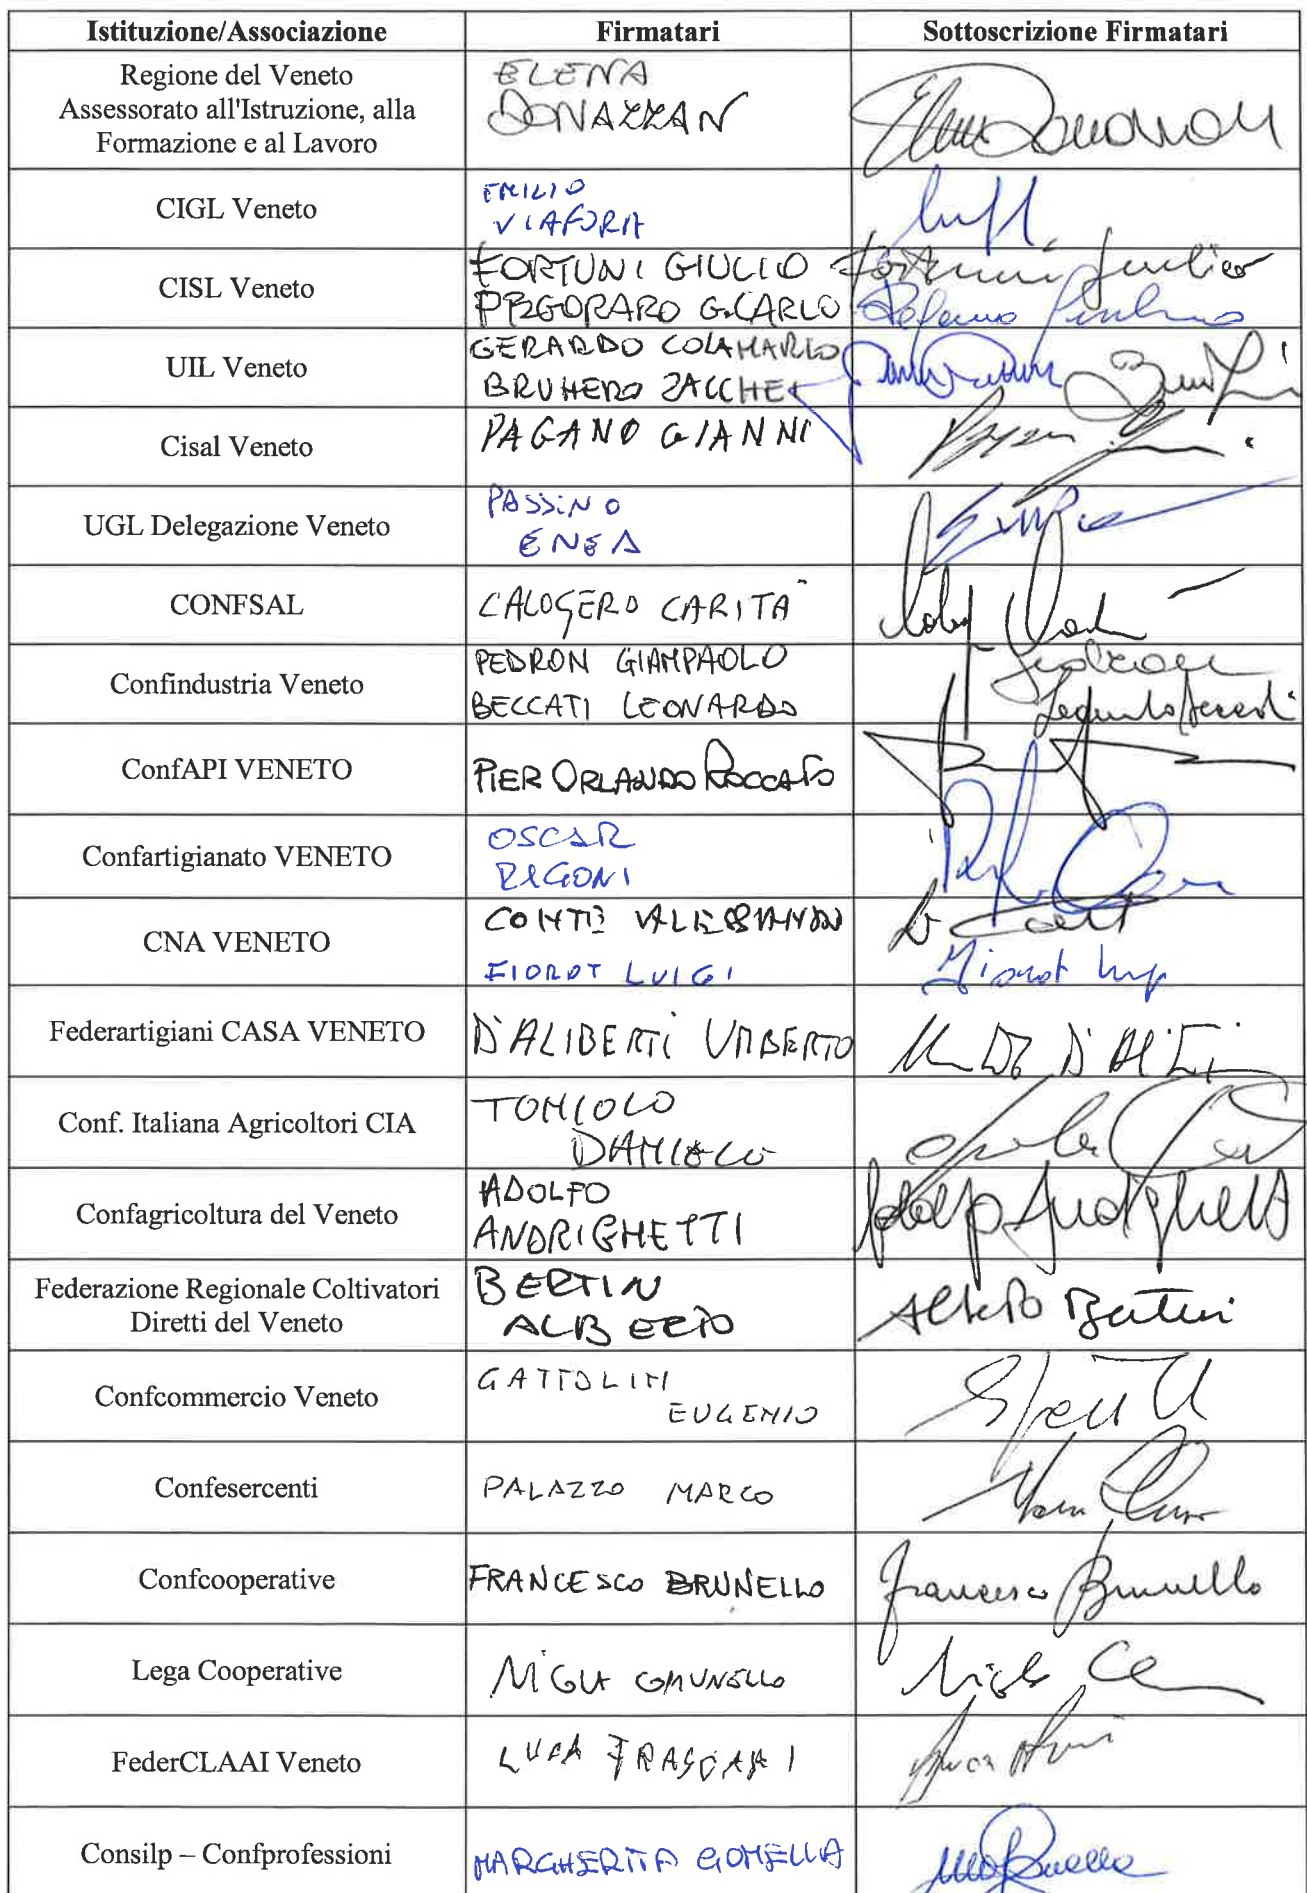 Istituzione/Associazione
Firmatari
Sottoscrizione Firmatari
Regione del Veneto
Assessorato all'Istruzione, alla
Formazione e al Lavoro
ELENA
DONAZZAN
CIGL Veneto
EMILIO
VIAFORA
CISL Veneto
FORTUNI GIULIO
PEGORARO G.CARLO
Fortuni Giulio
UIL Veneto
GERARDO COLAMARCO
BRUHERO ZACCHEI
Cisal Veneto
PAGANO GIANNI
UGL Delegazione Veneto
PASSINO
ENEA
CONFSAL
CALOGERO CARITA`
Confindustria Veneto
PEDRON GIAMPAOLO
BECCATI LEONARDO
ConfAPI VENETO
PIER ORLANDO ROCCATO
Confartigianato VENETO
OSCAR
RIGONI
CNA VENETO
CONTE ALESSANDRO
FIOROT LUIGI
Fiorot Luigi
Federartigiani CASA VENETO
D'ALIBERTI UMBERTO
Conf. Italiana Agricoltori CIA
TOMIOLO
Confagricoltura del Veneto
ADOLFO
ANDRIGHETTI
Adolfo Andrighetti
Federazione Regionale Coltivatori
Diretti del Veneto
BERTIN
ALBERTO
Alberto Bertin
Confcommercio Veneto
GATTOLIN
EUGENIO
Confesercenti
PALAZZO MARCO
Confcooperative
FRANCESCO BRUNELLO
Francesco Brunello
Lega Cooperative
COMUNELLO
FederCLAAI Veneto
LUCA
Consilp – Confprofessioni
MARGHERITA GOMELLA